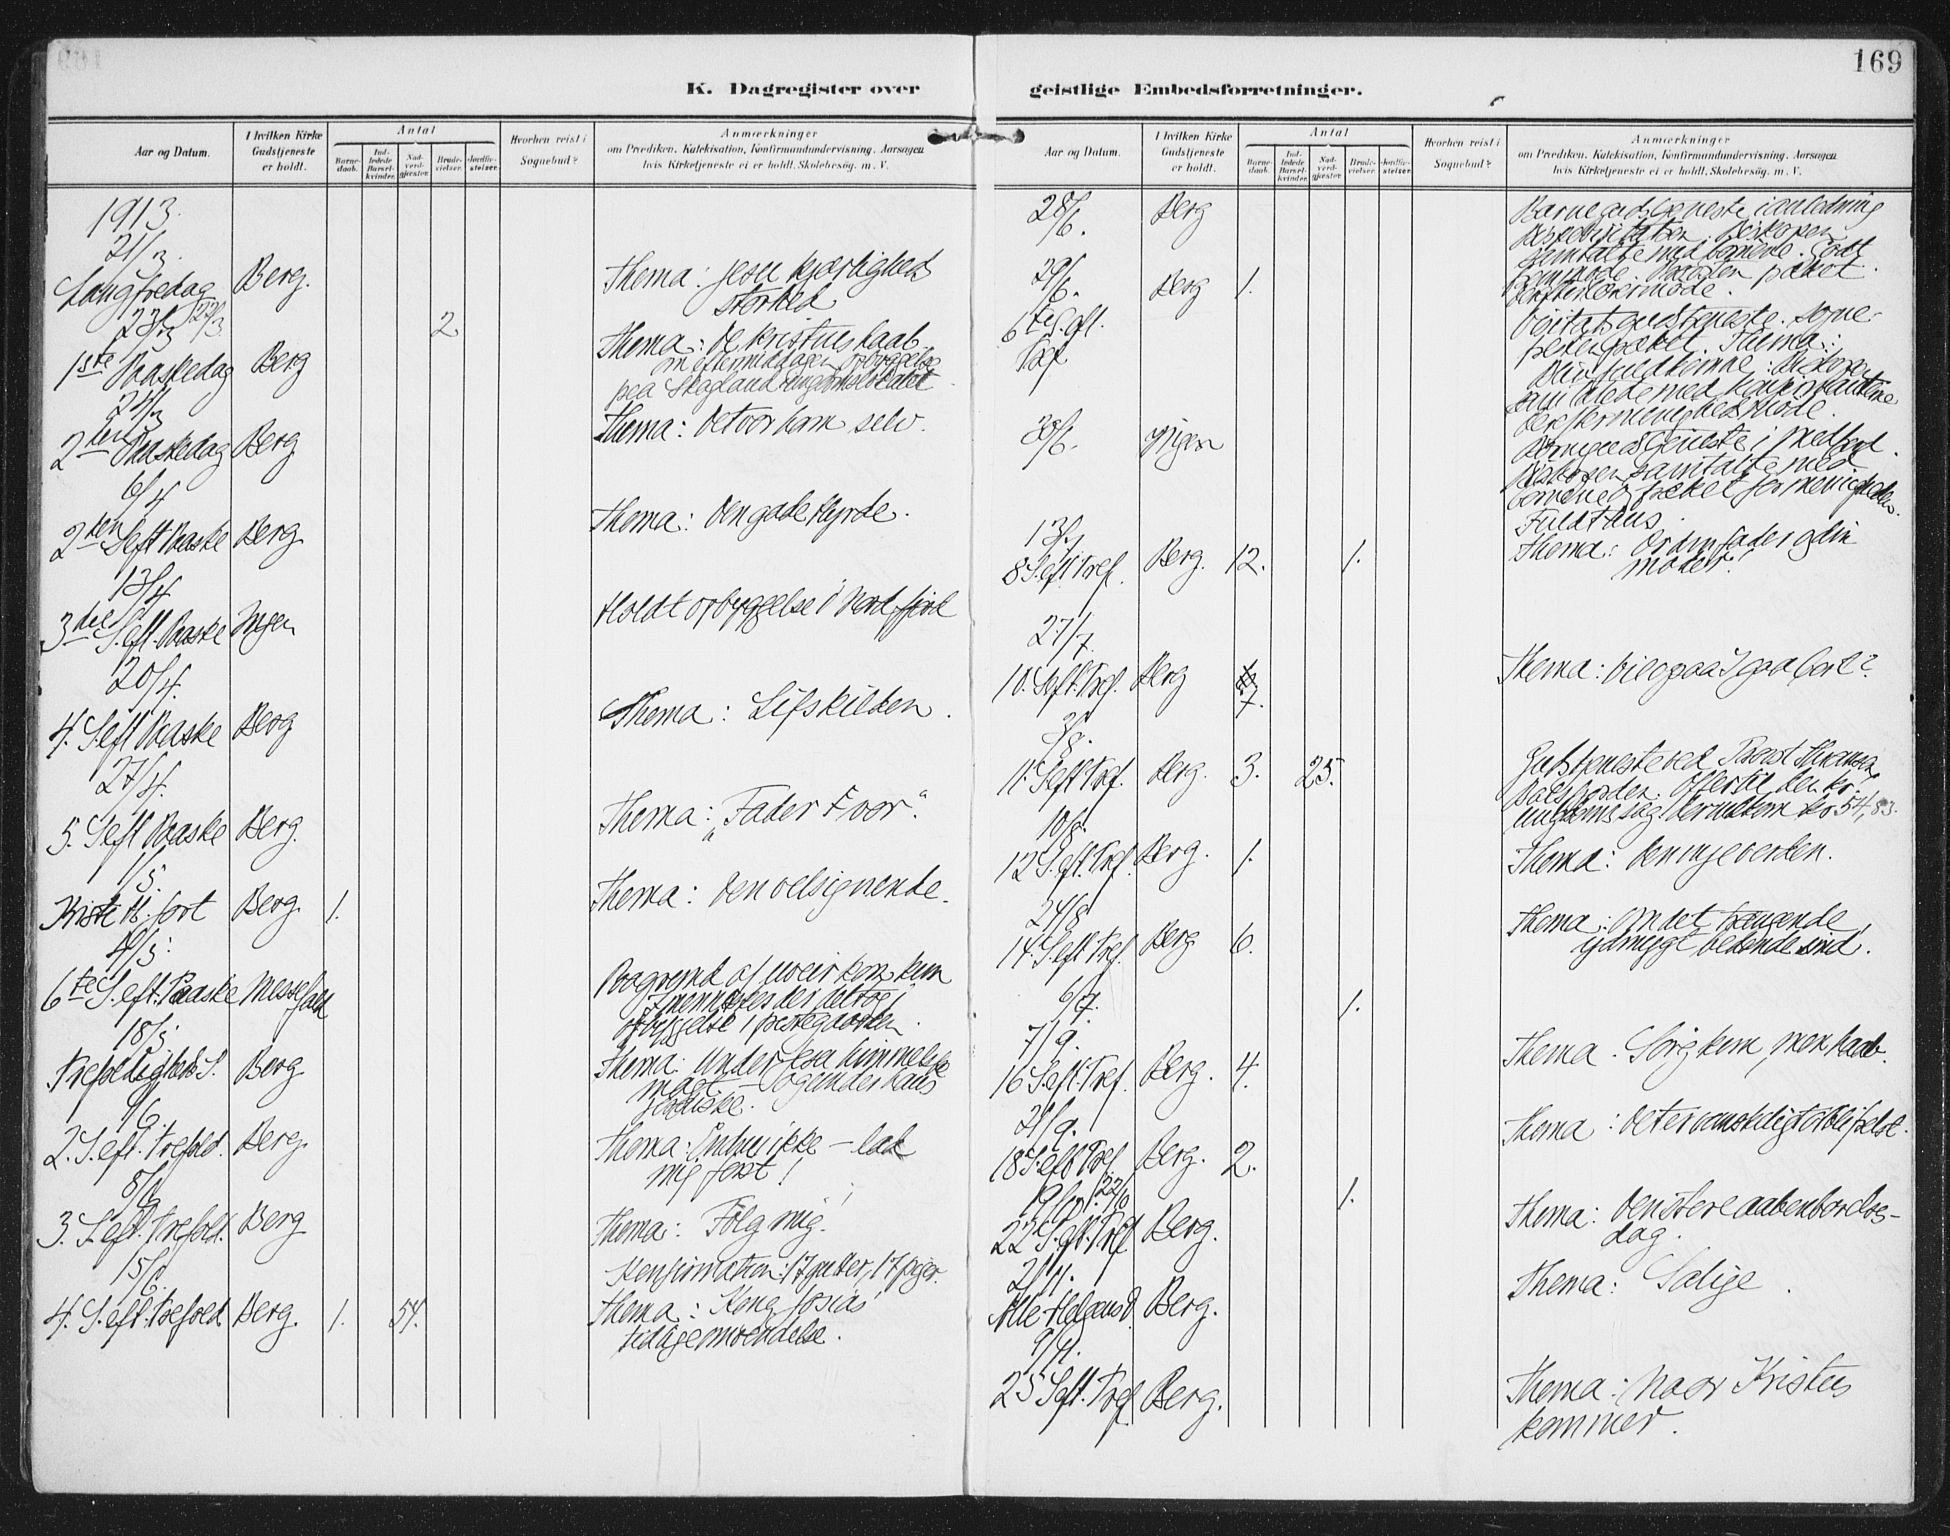 169
K. Dagregister over geistlige Embedsforretninger.
Aar og Datum.
I hvilken Kirke Gudstjeneste er holdt.
Antal
Barne-daab.
Ind-ledede Barsel-kvinder.
Nad-verd-gjester.
Brude-vielser.
Jordfæ-stelser.
Hvorhen reist i Sognebud?
Anmærkninger
om Prædiken, Katekisation, Konfirmandundervisning, Aarsagen
hvis Kirketjeneste ei er holdt, Skolebesøg. m. V.
1913.
21/3.
Langfredag Berg. Thema: Jesu kjærligheds
storhed
23/3 22/3 2
1ste Paaskedag Berg Thema: De kristnes haab
om eftermiddagen opbyggelse
paa Skaland ungdomslokale
24/3
2den Paaskedag Berg Thema: Det var ham selv.
6/4
2den S. eft. Paaske Berg Thema: Den gode Hyrde.
13/4
3die S. eft. Paaske Ingen Holdt opbyggelse i Nordfjord
20/4.
4. S. eft. Paaske Berg Thema: Lifskilden.
27/4.
5. S. eft Paaske Berg. Thema: "Fader Vor".
1/5.
Kristi H. fart Berg. 1. Thema: Den velsignende.
4/5.
6te S. eft. Paaske Messefald Paagrund af uveir kom kun
7 mennesker der deltog i
opbyggelse i prestegaarden.
18/5
Trefoldigheds S. Berg Thema: Under Jesu himmelske
magt – og under hans
jordiske.
1/6.
2. S. eft. Trefold. Berg. Thema: ikke – lad
mig først!
8/6
3. S. eft. Trefold. Berg Thema: Følg mig!
15/6. Konfirmation: 17 gutter, 17 piger.
4. S. eft. Trefold. Berg. 1. 54. Thema: Kong Josias'
tidlige omvendelse.
Aar og Datum.
I hvilken Kirke Gudstjeneste er holdt.
Antal
Barne-daab.
Ind-ledede Barsel-kvinder.
Nad-verd-gjester.
Brude-vielser.
Jordfæ-stelser.
Hvorhen reist i Sognebud?
Anmærkninger
om Prædiken, Katekisation, Konfirmandundervisning, Aarsagen
hvis Kirketjeneste ei er holdt, Skolebesøg. m. V.
28/6. Berg Barnegudstjeneste i anledning
Bispevisitatsen. Biskopen
samtalte med børnene. Godt
fremmøde.
29/6. Berg 1. Visitatsgudstjeneste. Sogne-
6te S. eft. Tref presten talet. Thema:
Biskopen
samtalede med konfirmanterne
derefter menighedsmøde.
30/6. Barnegudstjeneste i Medfjord.
Biskopen samtalte med
børnene og talet for menigheden.
Fuldt hus.
13/7
8 S. eft. Tref. Berg. 12. 1. Thema: Ær din fader og din
moder!
27/7.
10. S. eft. Tref. Berg 7. Thema: Vil ogsaa I gaa bort?
3/8.
11. S. eft Tref. Berg. 3. 25. Gudstjeneste ved
Offertil den kr.
ungdomssag. Der indkom kr 54,83.
10/8.
12 S. eft. Tref. Berg. 1. Thema: Den nye verden.
24/8
14. S. eft Tref. Berg 6. Thema: Om det trængende,
ydmygt bedende sind.
6/7. 1.
7/9.
16 S. eft. Tref. Berg. 4. Thema. Sørg kun, men haab.
21/9.
18 S. eft Tref. Berg. 2. Thema: Det er vanskeligt at bli frelst.
19/10. 22/10 1.
22 S. eft. Tref Berg. Thema: Den store aabenbarelses-
dag.
2/11.
Alle Helgensd. Berg. Thema: Salige.
9/11.
25 S. eft. Tref Berg. Thema: Naar Kristus
kommer.